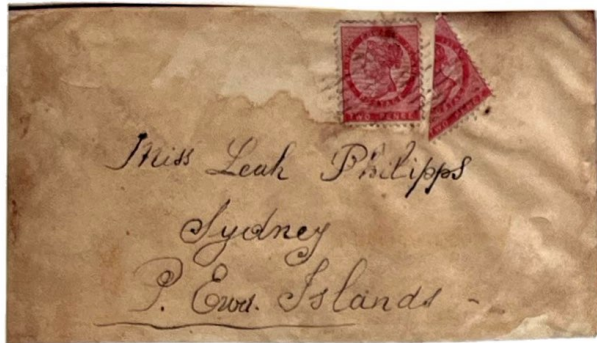 TWO PENCE
Miss Leah Philipps
Sydney
P. Ewd. Islands